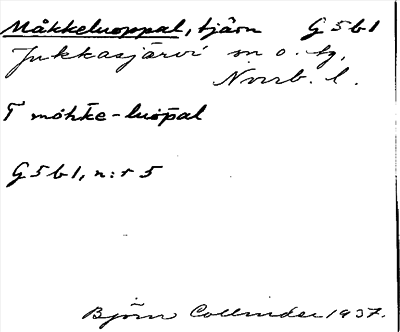 Måkkeluoppal, tjärn G5b1
Jukkasjärvi sn o. tg,
Norrb. l.
T mohke-luoppal
G5b1, n:r 5
Björn Collinder 1937.